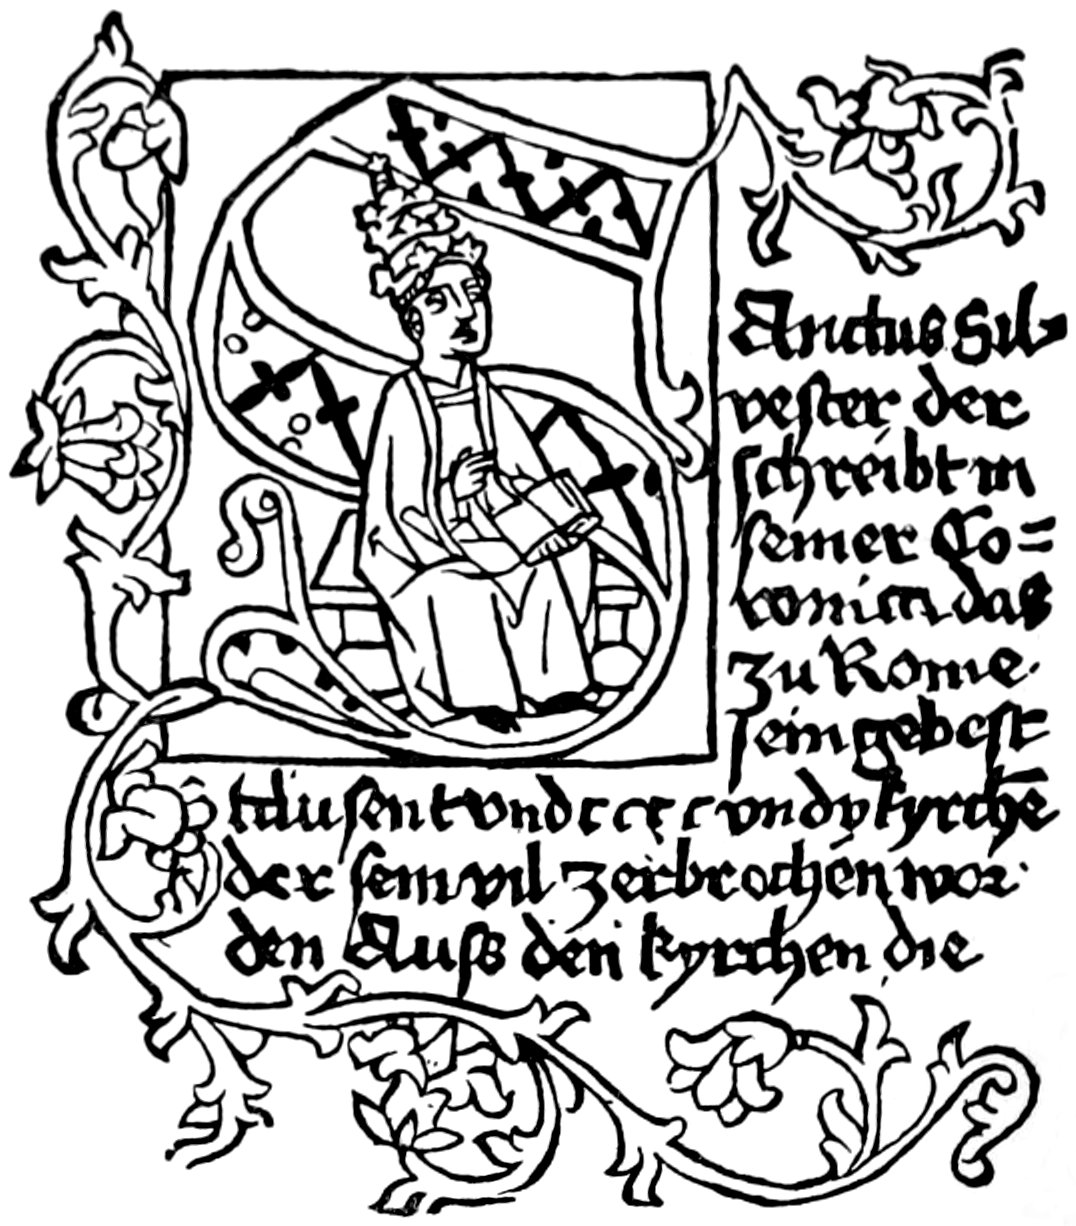 SAnctus Sil
veſter der
ſchreibt in
ſeiner Co=
ronica das
zu Rome·
ſein gebeſt
tauſent vnd cccc vnd v kyrchē
der ſein vil zerbrochen wor·
den Auſs den kyrchen die